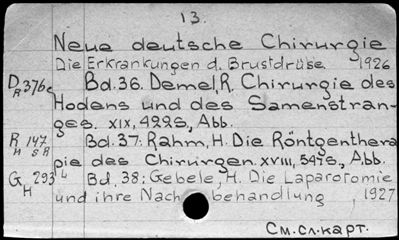 13.
Neue deutsche Chirurgie
Die Erkrankungen d. Brustdrüse. 1926
D/R 376c Bd.36. Demel, R. Chirurgie des
Hodens und des Samenstran-
ges. XIX, 492 S., Abb.
R/H 147 S R Bd.37: Rahm, H. Die Röntgenthera
pie des Chirurgen. XVIII, 547 S., Abb.
G/H 293/4 Bd. 38: Gebele, H. Die Laparotomie
und ihre Nachbehandlung, 1927.
См.сл.карт.